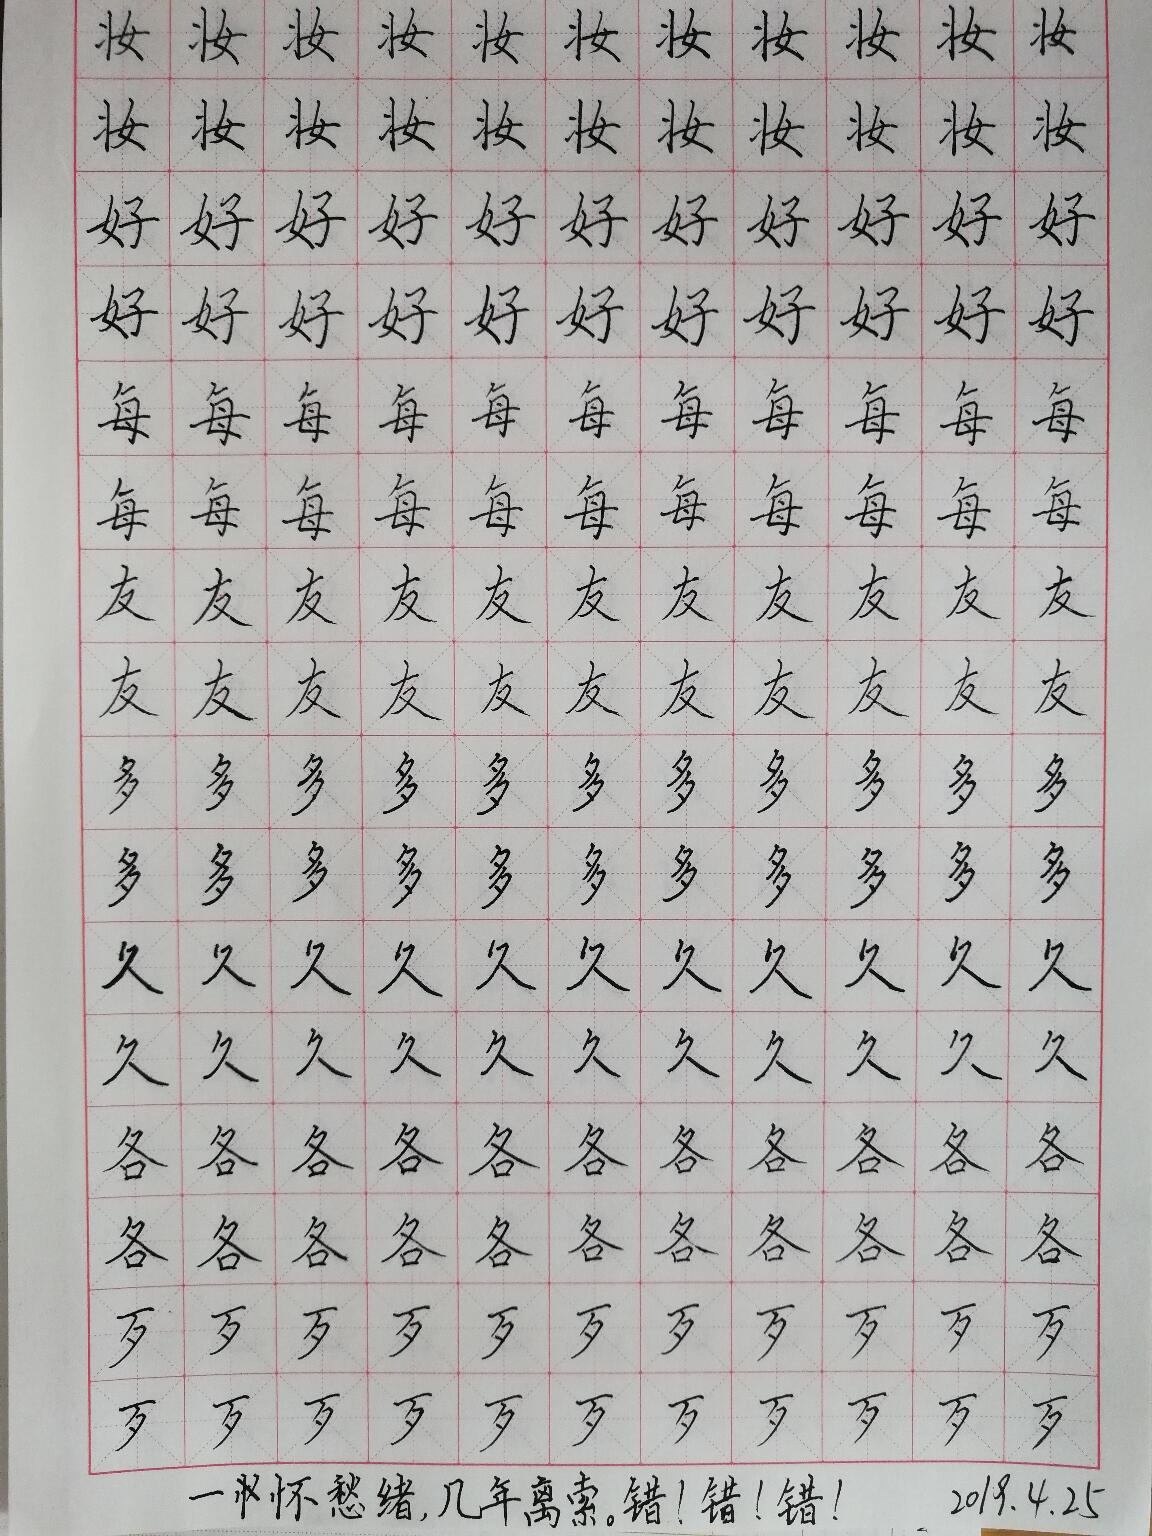 妆妆妆妆妆妆妆妆妆妆妆
妆妆妆妆妆妆妆妆妆妆妆
好好好好好好好好好好好
好好好好好好好好好好好
每每每每每每每每每每每
每每每每每每每每每每每
友友友友友友友友友友友
友友友友友友友友友友友
多多多多多多多多多多多
多多多多多多多多多多多
久久久久久久久久久久久
久久久久久久久久久久久
各各各各各各各各各各各
各各各各各各各各各各各
歹歹歹歹歹歹歹歹歹歹歹
歹歹歹歹歹歹歹歹歹歹歹
一怀愁绪,几年离索。错!错!错! 2019.4.25